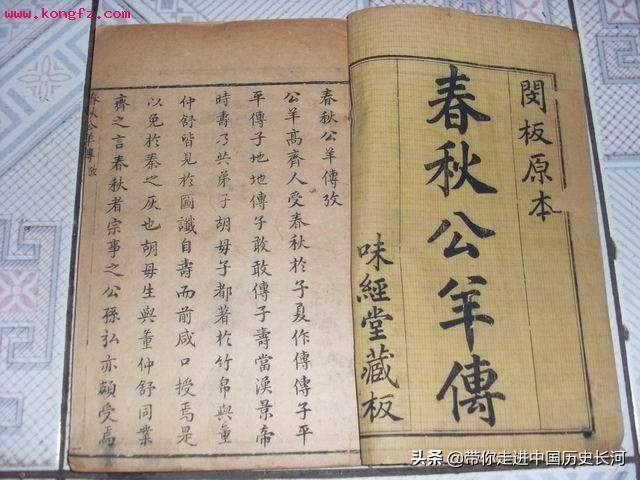 www.kongfz.com
閔板原本
春秋公羊傳
味經堂藏板
春秋公羊傳攷
公羊高齊人受春秋於子夏作傳傳子平
平傳子地地傳子敢敢傳子壽當漢景帝
時壽乃共弟子胡毋子都著於竹帛與董
仲舒皆見於圖讖自壽而前咸口授焉是
以免於秦之灰也胡毋生與董仲舒同業
齊之言春秋者宗事之公孫弘亦頗受焉
春秋公羊傳攷
头条 @带你走进中国历史长河